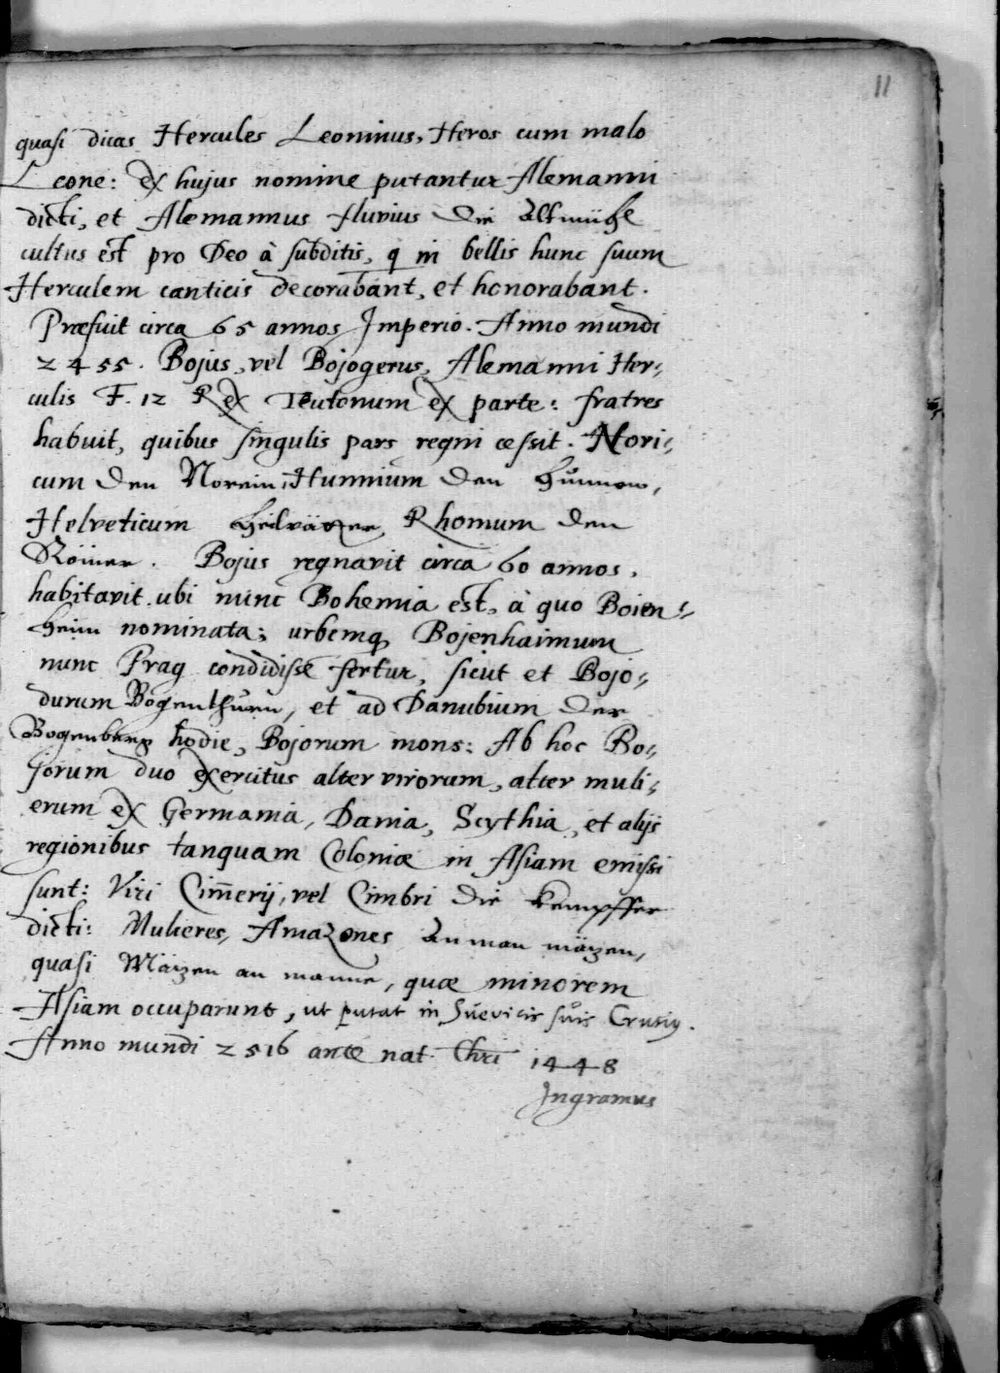 11
quasi dicas Hercules Leoninus, Heros cum malo
Leone: ex hujus nomine putantur Alemanni
dicti, et Alemannus fluvius die Altmühl
cultus est pro Deo à subditis, q in bellis hunc suum
Herculem canticis decorabant, et honorabant.
Præfuit circa 65 annos Imperio. Anno mundi
2455. Bojus, vel Bojogerus, Alemanni Her-
culis F. 12 Rex Teutonum ex parte: fratres
habuit, quibus singulis pars regni cessit. Nori-
cum den Norein, Hunnium den Hůnnen,
Helveticum Helvätzer, Rhomum den
Römer. Bojus regnavit circa 60 annos,
habitavit ubi nunc Bohemia est, à quo Boien-
heim nominata; urbemq Bojenhaimum
nunc Prag condidisse fertur, sicut et Bojo-
durum Bogenthurn, et ad Danubium der
Bogenberg hodie, Bojorum mons: Ab hoc Bo-
jorum duo exercitus alter virorum, alter muli-
erum ex Germania, Dania, Scythia, et alijs
regionibus tanquam Coloniæ in Asiam emissi
sunt: Viri Cim̅erij, vel Cimbri die kempffer
dicti: Mulieres, Amazones An man mäzen,
quasi Mäzen an manne, quæ minorem
Asiam occuparunt, ut putat in Suevicis suis Crusiꝰ.
Anno mundi 2516 ante nat. Chri 1448
Ingramus